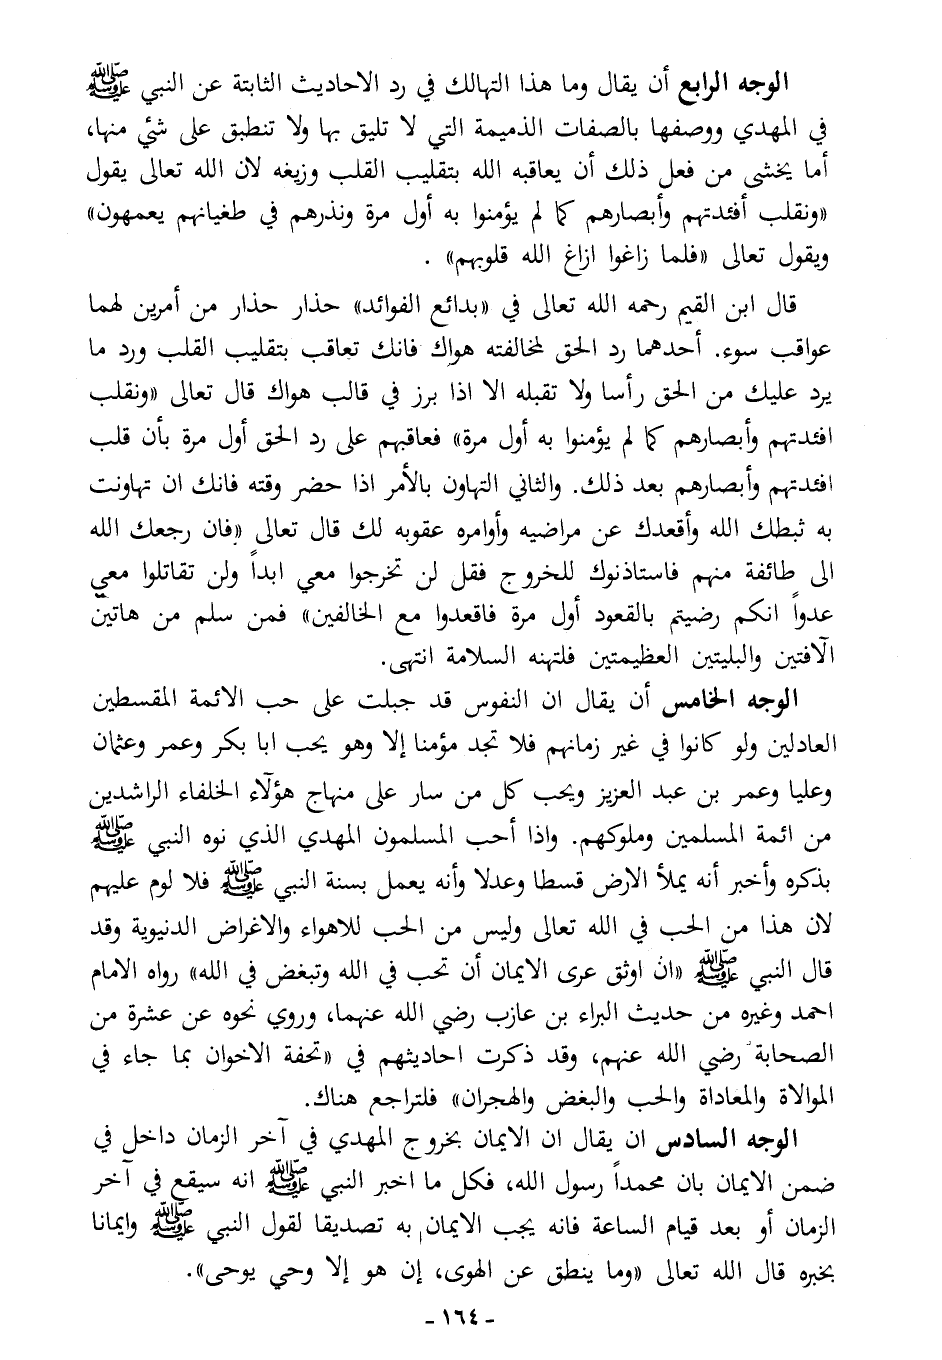 الوجه الرابع أن يقال وما هذا التهالك في رد الاحاديث الثابتة عن النبي ﷺ
في المهدي ووصفها بالصفات الذميمة التي لا تليق بها ولا تنطبق على شئ منها،
أما يخشى من فعل ذلك أن يعاقبه الله بتقليب القلب وزيغه لان الله تعالى يقول
«ونقلب أفئدتهم وأبصارهم كما لم يؤمنوا به أول مرة ونذرهم في طغيانهم يعمهون»
ويقول تعالى «فلما زاغوا ازاغ الله قلوبهم» .
قال ابن القيم رحمه الله تعالى في «بدائع الفوائد» حذار حذار من أمرين لهما
عواقب سوء. أحدهما رد الحق لمخالفته هواك فانك تعاقب بتقليب القلب ورد ما
يرد عليك من الحق رأسا ولا تقبله الا اذا برز في قالب هواك قال تعالى «ونقلب
افئدتهم وأبصارهم كما لم يؤمنوا به أول مرة» فعاقبهم على رد الحق أول مرة بأن قلب
افئدتهم وأبصارهم بعد ذلك. والثاني التهاون بالأمر اذا حضر وقته فانك ان تهاونت
به ثبطك الله وأقعدك عن مراضيه وأوامره عقوبه لك قال تعالى «فان رجعك الله
الى طائفة منهم فاستاذنوك للخروج فقل لن تخرجوا معي ابداً ولن تقاتلوا معي
عدواً انكم رضيتم بالقعود أول مرة فاقعدوا مع الخالفين» فمن سلم من هاتين
الآفتين والبليتين العظيمتين فلتهنه السلامة انتهى.
الوجه الخامس أن يقال ان النفوس قد جبلت على حب الائمة المقسطين
العادلين ولو كانوا في غير زمانهم فلا تجد مؤمنا إلا وهو يحب ابا بكر وعمر وعثمان
وعليا وعمر بن عبد العزيز ويحب كل من سار على منهاج هؤلآء الخلفاء الراشدين
من ائمة المسلمين وملوكهم. واذا أحب المسلمون المهدي الذي نوه النبي ﷺ
بذكره وأخبر أنه يملأ الارض قسطا وعدلا وأنه يعمل بسنة النبي ﷺ فلا لوم عليهم
لان هذا من الحب في الله تعالى وليس من الحب للاهواء والاغراض الدنيوية وقد
قال النبي ﷺ «ان اوثق عرى الايمان أن تحب في الله وتبغض في الله» رواه الامام
احمد وغيره من حديث البراء بن عازب رضي الله عنهما، وروي نحوه عن عشرة من
الصحابة رضي الله عنهم، وقد ذكرت احاديثهم في «تحفة الاخوان بما جاء في
الموالاة والمعاداة والحب والبغض والهجران» فلتراجع هناك.
الوجه السادس ان يقال ان الايمان بخروج المهدي في آخر الزمان داخل في
ضمن الايمان بان محمداً رسول الله، فكل ما اخبر النبي ﷺ انه سيقع في آخر
الزمان أو بعد قيام الساعة فانه يجب الايمان به تصديقا لقول النبي ﷺ وايمانا
بخبره قال الله تعالى «وما ينطق عن الهوى، إن هو إلا وحي يوحى».
- ١٦٤ -